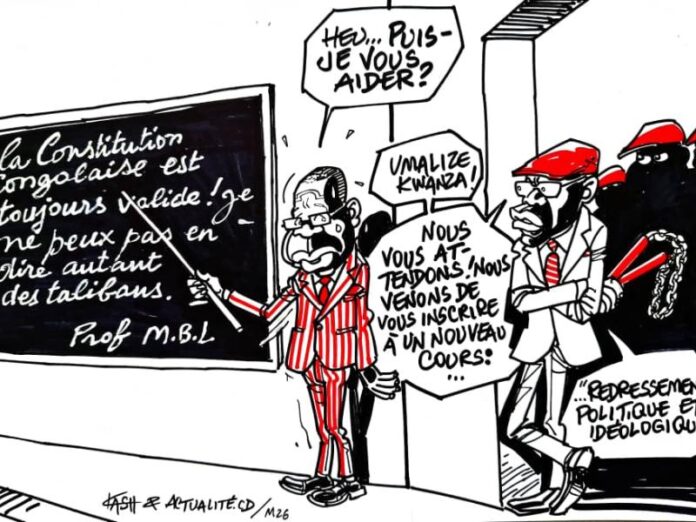 la Constitution
congolaise est
toujours valide ! Je
ne peux pas en
dire autant
des talibans.
Prof M.B.L
HEU... PUIS-
JE VOUS
AIDER ?
UMALIZE
KWANZA !
NOUS
VOUS AT-
TENDONS ! NOUS
VENONS DE
VOUS INSCRIRE
À UN NOUVEAU
COURS :
...
"...REDRESSEMEN
POLITIQUE ET
IDÉOLOGIQU
KASH & ACTUALITE.CD / M26